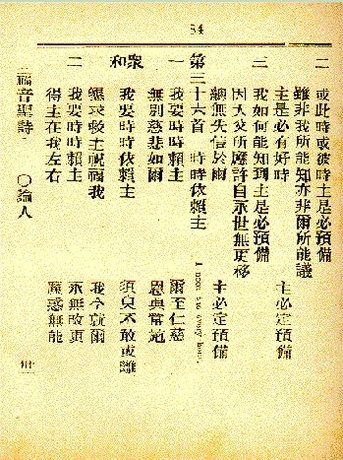 54
二 或此時或彼時主是必預備
雖非我所能知亦非爾所能議
主是必有好時 主必定預備
三 我如何能知到主是必預備
因天父所應許自永世無更移
總無失信於爾 主必定預備
第三十六首 時時依賴主 I need thee every hour,
一 我要時時賴主 爾至仁慈
無別慈悲如爾 恩與常施
和眾 我要時時依賴主 須臾不敢或離
懇求救主祝福我 我今就爾
二 我要時時賴主 永無改更
得主在我左右 魔惑無能
福音聖詩 〇論人 卅